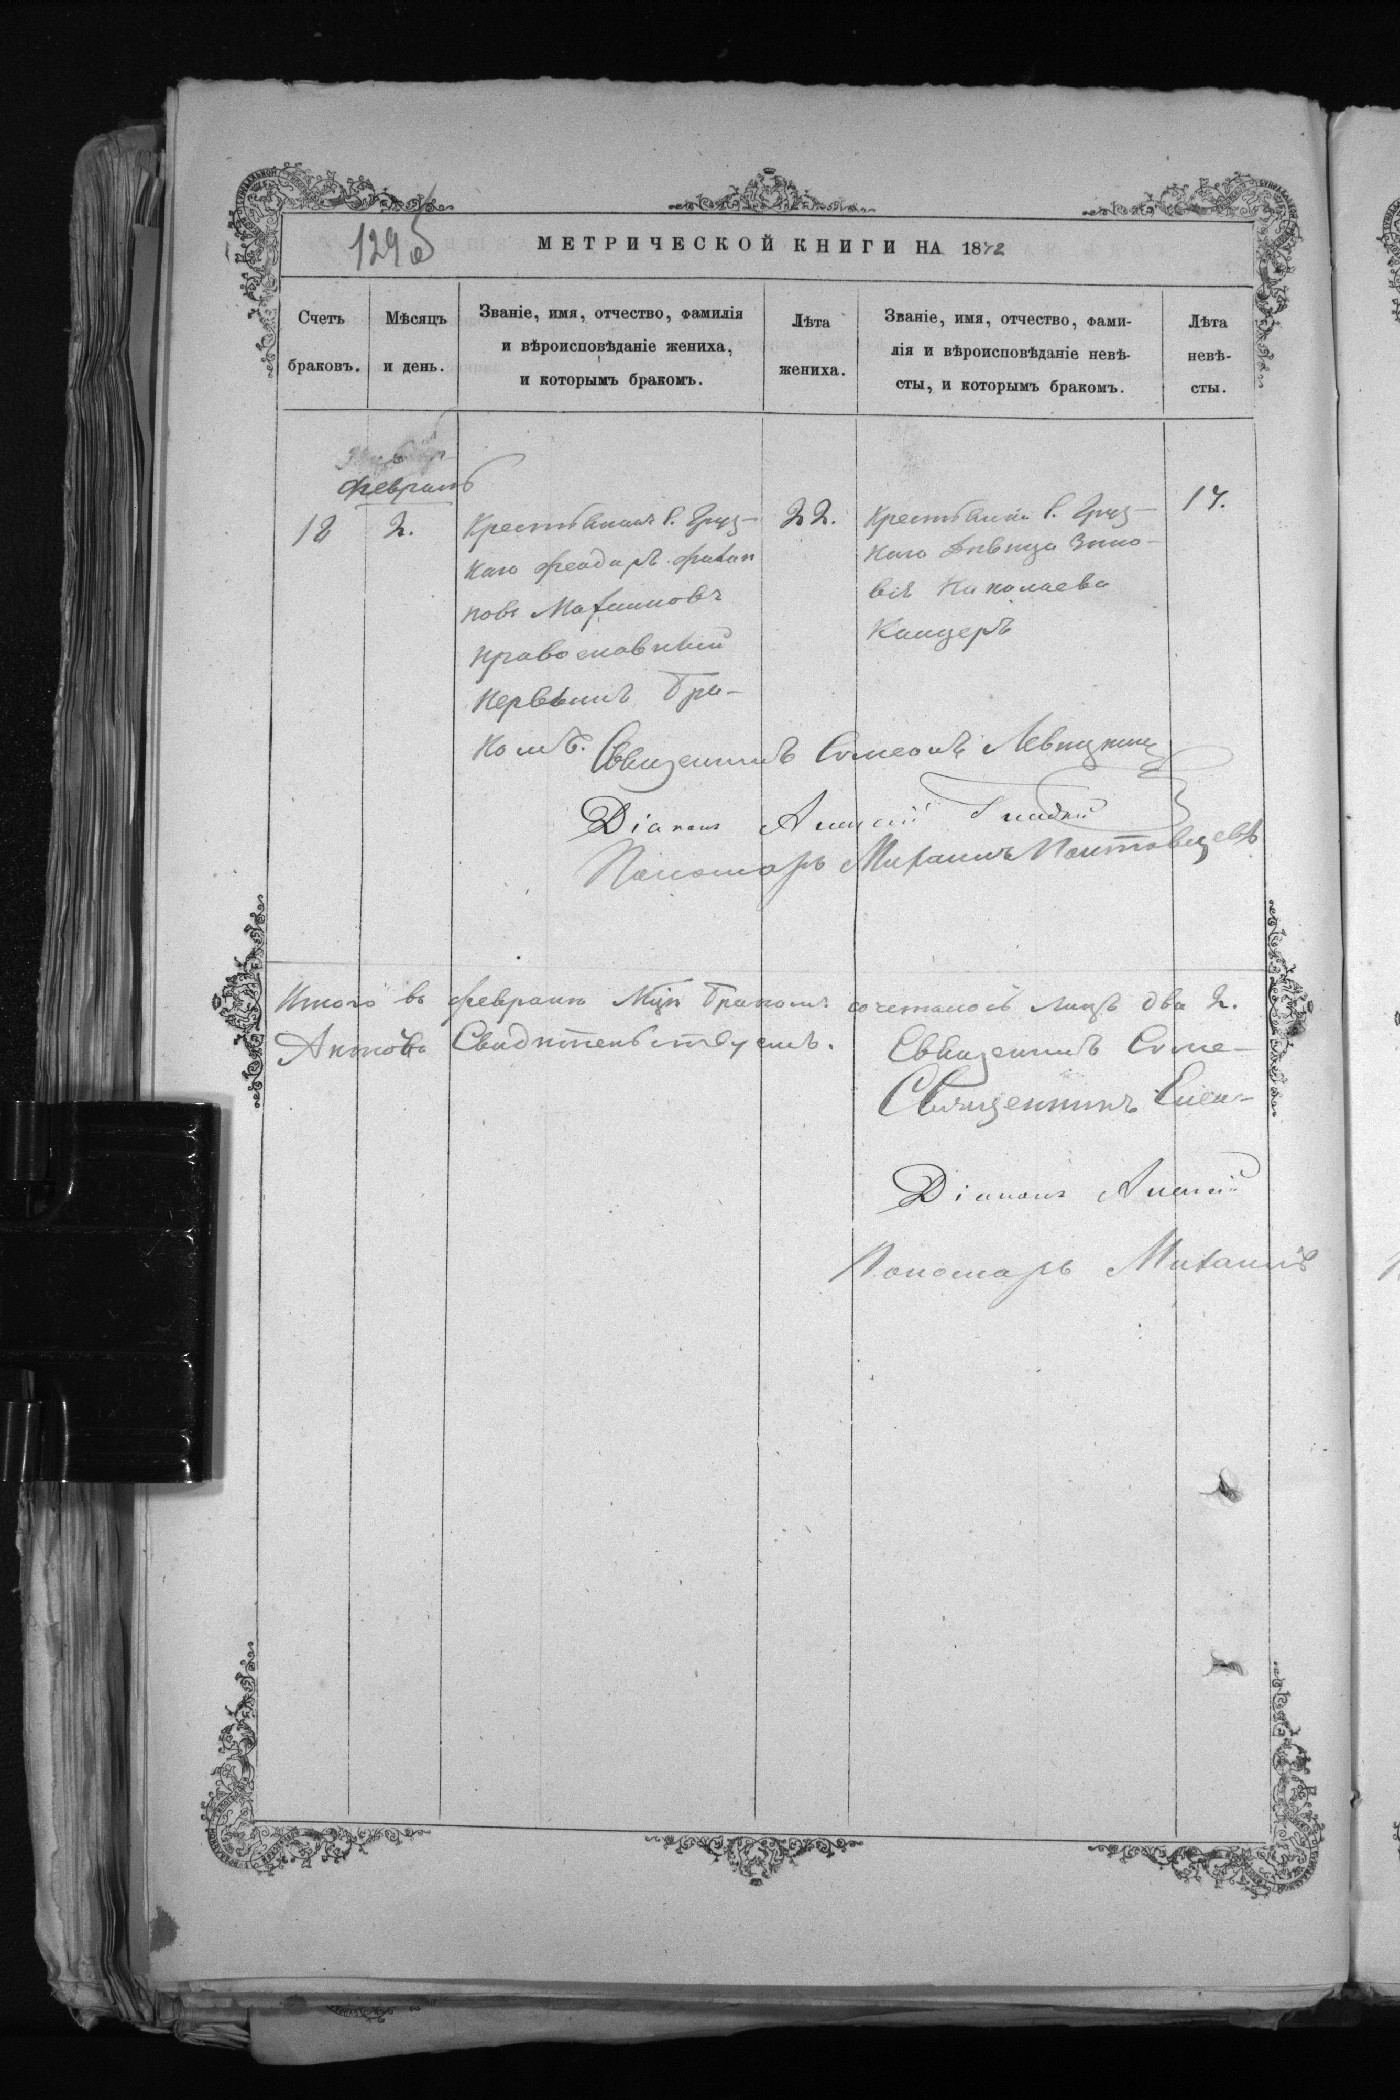 129 об
МЕТРИЧЕСКОЙ КНИГИ НА 1872
Счетъ браковъ.
Мѣсяцъ и день.
Званіе, имя, отчество, фамилія
и вѣроисповѣданіе жениха,
и которымъ бракомъ.
Лѣта
жениха.
Званіе, имя, отчество, фами-
лія и вѣроисповѣданіе невѣ-
сты, и которымъ бракомъ.
Лѣта
невѣ-
сты.
Февраль
18
2.
Крестьянинъ с. Груз-
каго Феодоръ
повъ
православный
первымъ бра-
комъ.
22.
Крестьянка с. Груз-
каго Дѣвица Зино-
вія Николаева
Канцеръ
17.
Священникъ Симеонъ Левицкий
Діаконъ Алексій
Пономарь Михаилъ
Итого въ февралѣ м-цѣ бракомъ сочеталось лицъ два 2.
Свидѣтельствуемъ.
Священникъ Симе-
Священникъ Симе-
Діаконъ Алексій
Пономарь Михаилъ